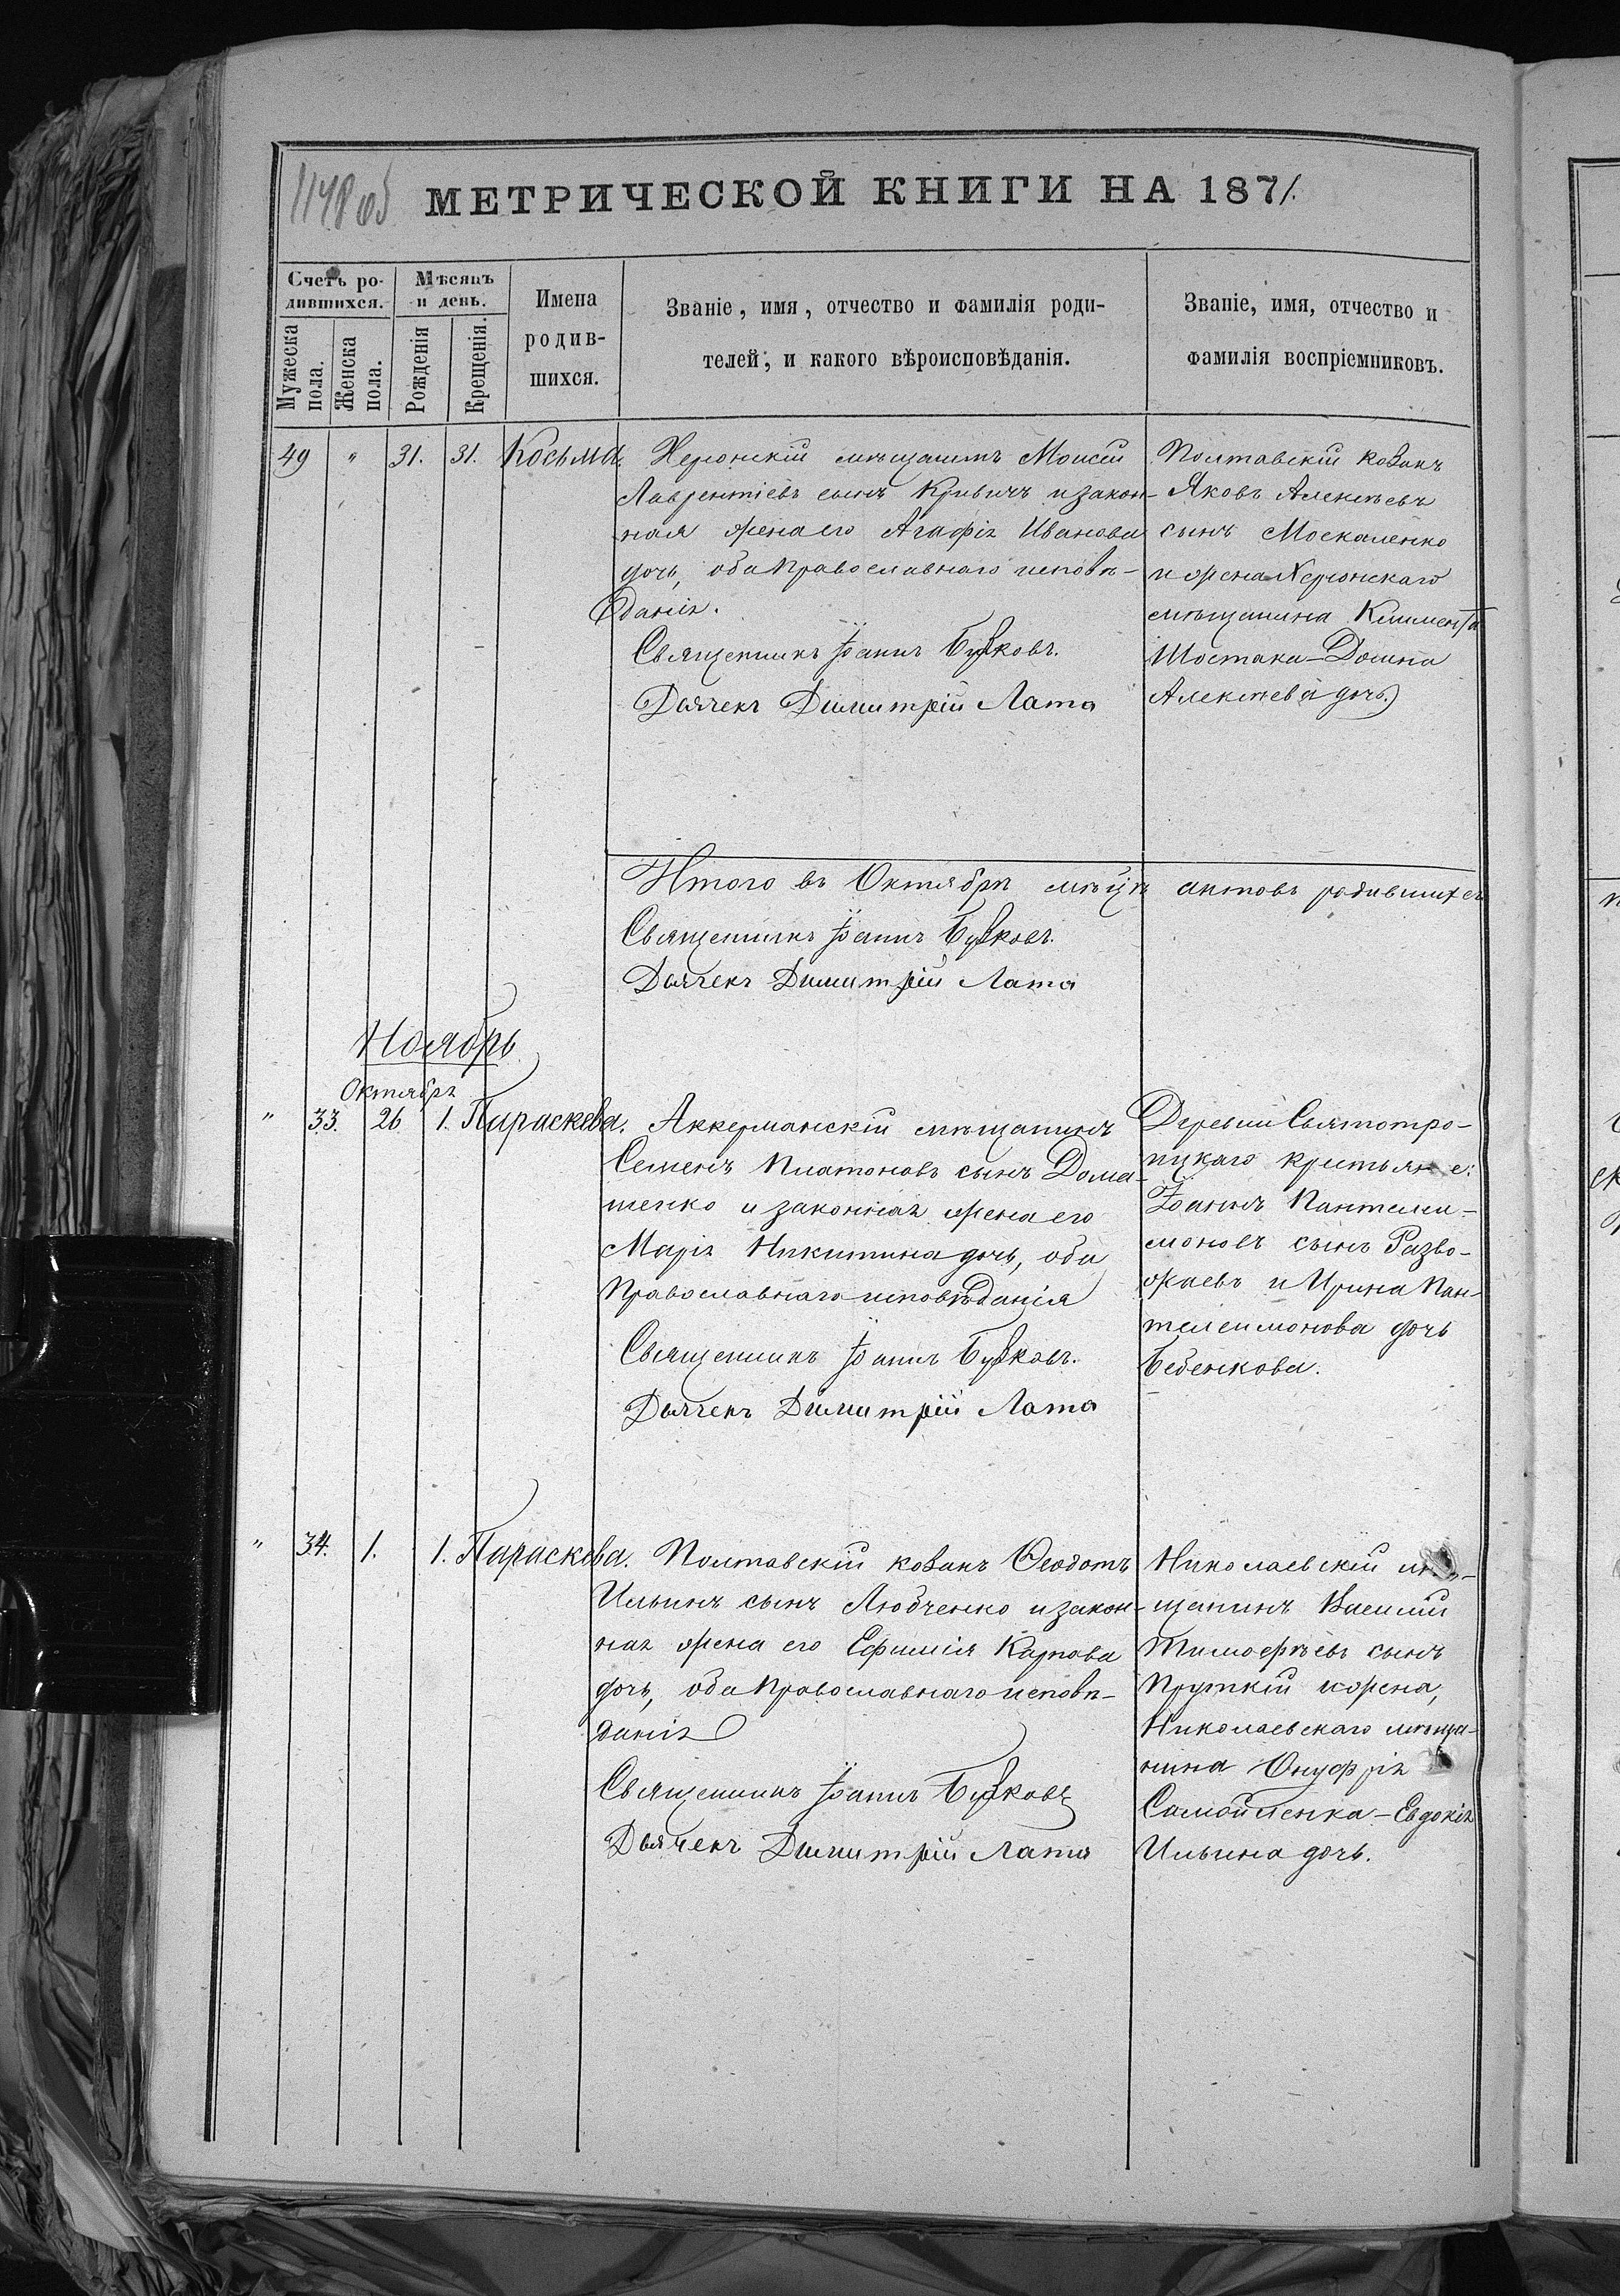 1148 об
МЕТРИЧЕСКОЙ КНИГИ НА 1871.
Счетъ ро-
дившихся.
Мужеска
пола.
Женска
пола.
Мѣсяцъ
и день.
Рожденія
Крещенія.
Имена
родив-
шихся.
Званіе, имя, отчество и фамилія роди-
телей, и какого вѣроисповѣданія.
Званіе, имя, отчество и
фамилія воспріемниковъ.
49 " 31. 31. Косьма.
Херсонскій мѣщанинъ Моисей
Лаврентіевъ сынъ Кривичъ и закон-
ная жена его Агафія Иванова
дочь, оба Православнаго исповѣ-
данія.
Священникъ Іоаннъ
Дьячекъ Димитрій Лата
Полтавскій козакъ
Яковъ Алексѣевъ
сынъ Москаленко
и жена Херсонскаго
мѣщанина Климента
Шостака - Домна
Алексѣева дочь.
Итого въ Октябрѣ мѣцѣ актовъ родившихся
Священникъ Іоаннъ
Дьячекъ Димитрій Лата
Ноябрь
Октября
" 33. 26 1. Параскева.
Аккерманскій мѣщанинъ
Семенъ Платоновъ сынъ Дома-
шенко и законная жена его
Марія Никитина дочь, оба
Православнаго исповѣданія
Священникъ Іоаннъ
Дьячекъ Димитрій Лата
Деревни Святотро-
ицкаго крестьяне:
Іоаннъ Пантелеи-
моновъ сынъ Разво-
жаевъ и Ирина Пан-
телеимонова дочь
Беденкова.
" 34. 1. 1. Параскева.
Полтавскій козакъ Ѳеодотъ
Ильинъ сынъ Любченко и закон-
ная жена его Ефимія Карпова
дочь, оба Православнаго исповѣ-
данія
Священникъ Іоаннъ
Дьячекъ Димитрій Лата
Николаевскій мѣ-
щанинъ Василій
Тимофѣевъ сынъ
Пруткій и жена,
Николаевскаго мѣща-
нина Онуфрія
Самойленка - Евдокія
Ильина дочь.